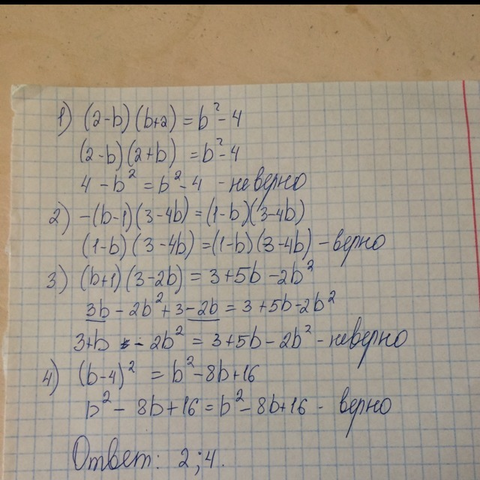 1) (2-b)(b+2) = b²-4
(2-b)(2+b) = b²-4
4 - b² = b²-4 - неверно
2) -(b-1)(3-4b) = (1-b)(3-4b)
(1-b)(3-4b) = (1-b)(3-4b) - верно
3) (b+1)(3-2b) = 3+5b-2b²
3b - 2b² + 3 - 2b = 3+5b-2b²
3+b - 2b² = 3+5b-2b² - неверно
4) (b-4)² = b²-8b+16
b² - 8b+16 = b²-8b+16 - верно
Ответ: 2;4.